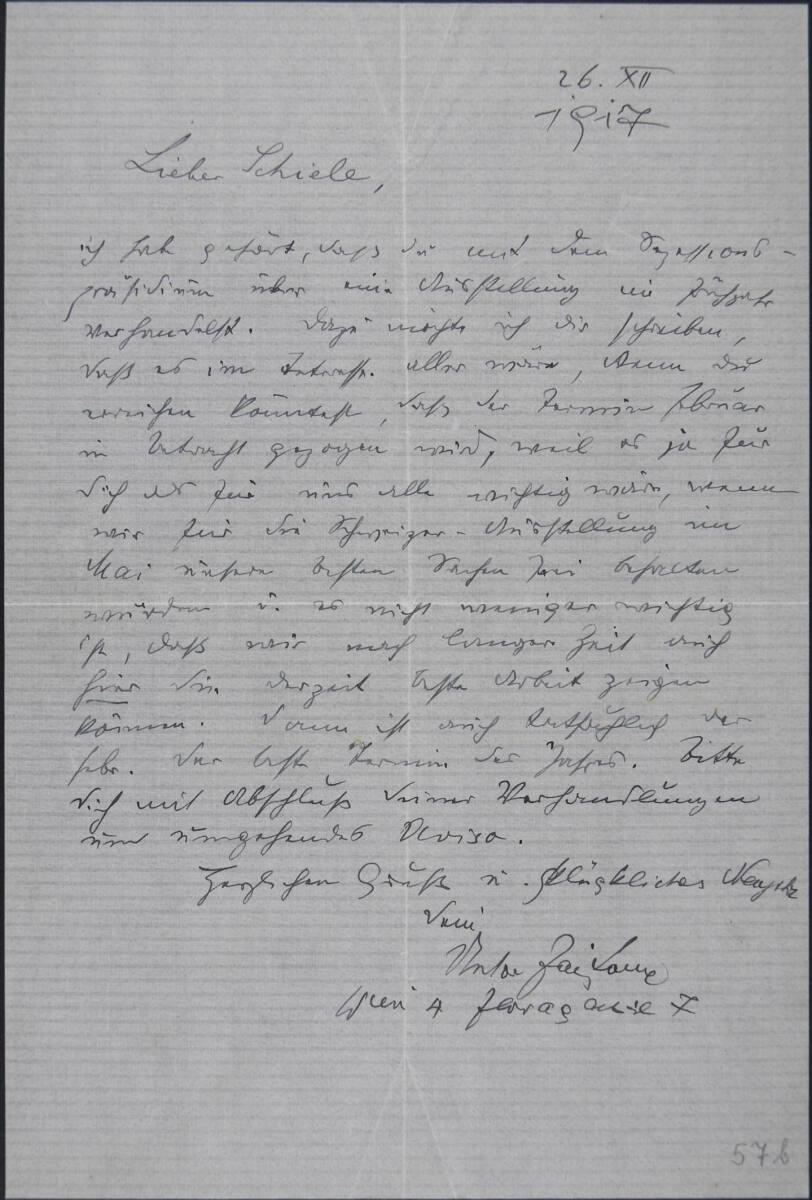 26. XII
1917
Lieber Schiele,
ich habe gehört, daß du mit dem Sezessions-
präsidium über eine Ausstellung im Frühjahr
verhandelst. Dazu möchte ich dir schreiben,
daß es im Interesse aller wäre, wenn du
erreichen könntest, daß der Termin Februar
in Betracht gezogen wird, weil es ja für
dich als für uns alle wichtig wäre, wenn
wir für die Schweizer-Ausstellung im
Mai unsere besten Sachen frei behalten
würden u. es nicht weniger wichtig
ist, daß wir nach langer Zeit auch
hier die derzeit beste Arbeit zeigen
können. Dann ist auch tatsächlich der
Febr. der beste Termin des Jahres. Bitte
dich mit Abschluß deiner Verhandlungen
um umgehendes Aviso.
Herzlichen Gruß u. glückliches Neujahr
dein
Anton Faistauer
Wien 4 Floragasse 7
57b